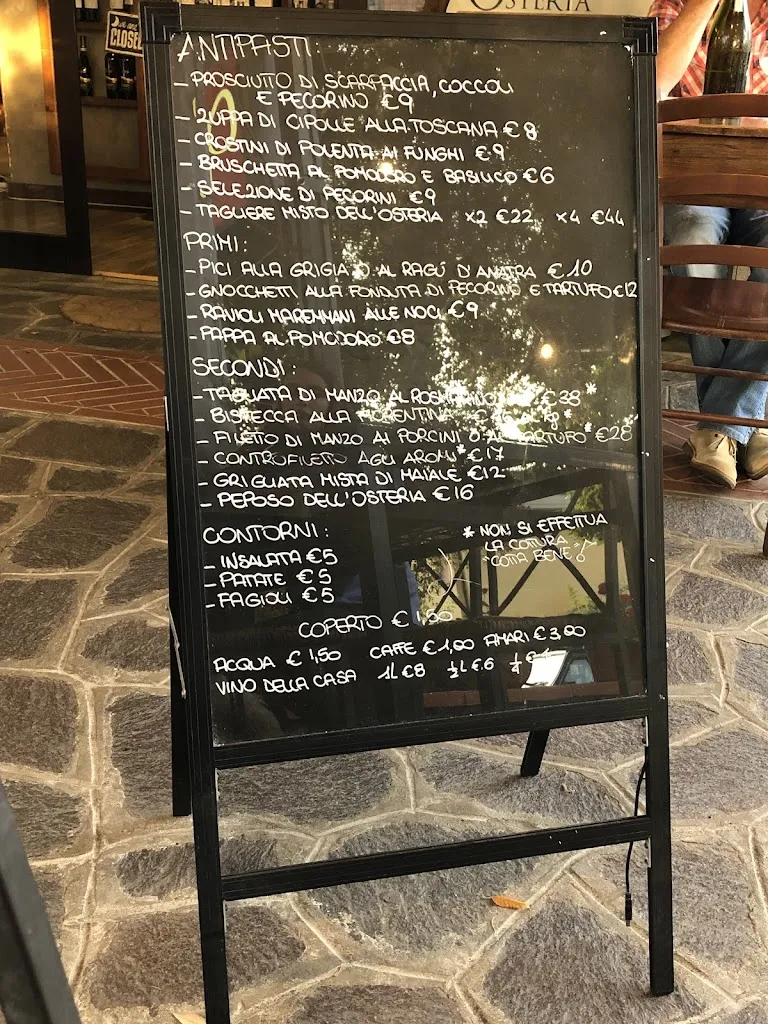 OSTERIA
CLOSED
ANTIPASTI:
- PROSCIUTTO DI SCARPACCIA, COCCOLI
E PECORINO €9
- ZUPPA DI CIPOLLE ALLA TOSCANA €8
- CROSTINI DI POLENTA AI FUNGHI €9
- BRUSCHETTA AL POMODORO E BASILICO €6
- SELEZIONE DI PECORINI €9
- TAGLIERE MISTO DELL'OSTERIA x2 €22 x4 €44
PRIMI:
- PICI ALLA GRIGIA O AL RAGÚ D'ANATRA €10
- GNOCCHETTI ALLA FONDUTA DI PECORINO E TARTUFO €12
- RAVIOLI MAREMMANI ALLE NOCI €9
- PAPPA AL POMODORO €8
SECONDI:
- TAGLIATA DI MANZO AL €38*
- BISTECCA ALLA FIORENTINA
- FILETTO DI MANZO AI PORCINI O AL TARTUFO* €28
- CONTROFILETTO AGLI AROMI* €17
- GRIGLIATA MISTA DI MAIALE €12
- PEPOSO DELL'OSTERIA €16
CONTORNI:
- INSALATA €5
- PATATE €5
- FAGIOLI €5
* NON SI EFFETTUA
LA COTTURA
"COTTA BENE"
COPERTO € 1,50
ACQUA € 1,50 CAFFE € 1,00 AMARI € 3,00
VINO DELLA CASA 1L €8 ½ L €6 ¼